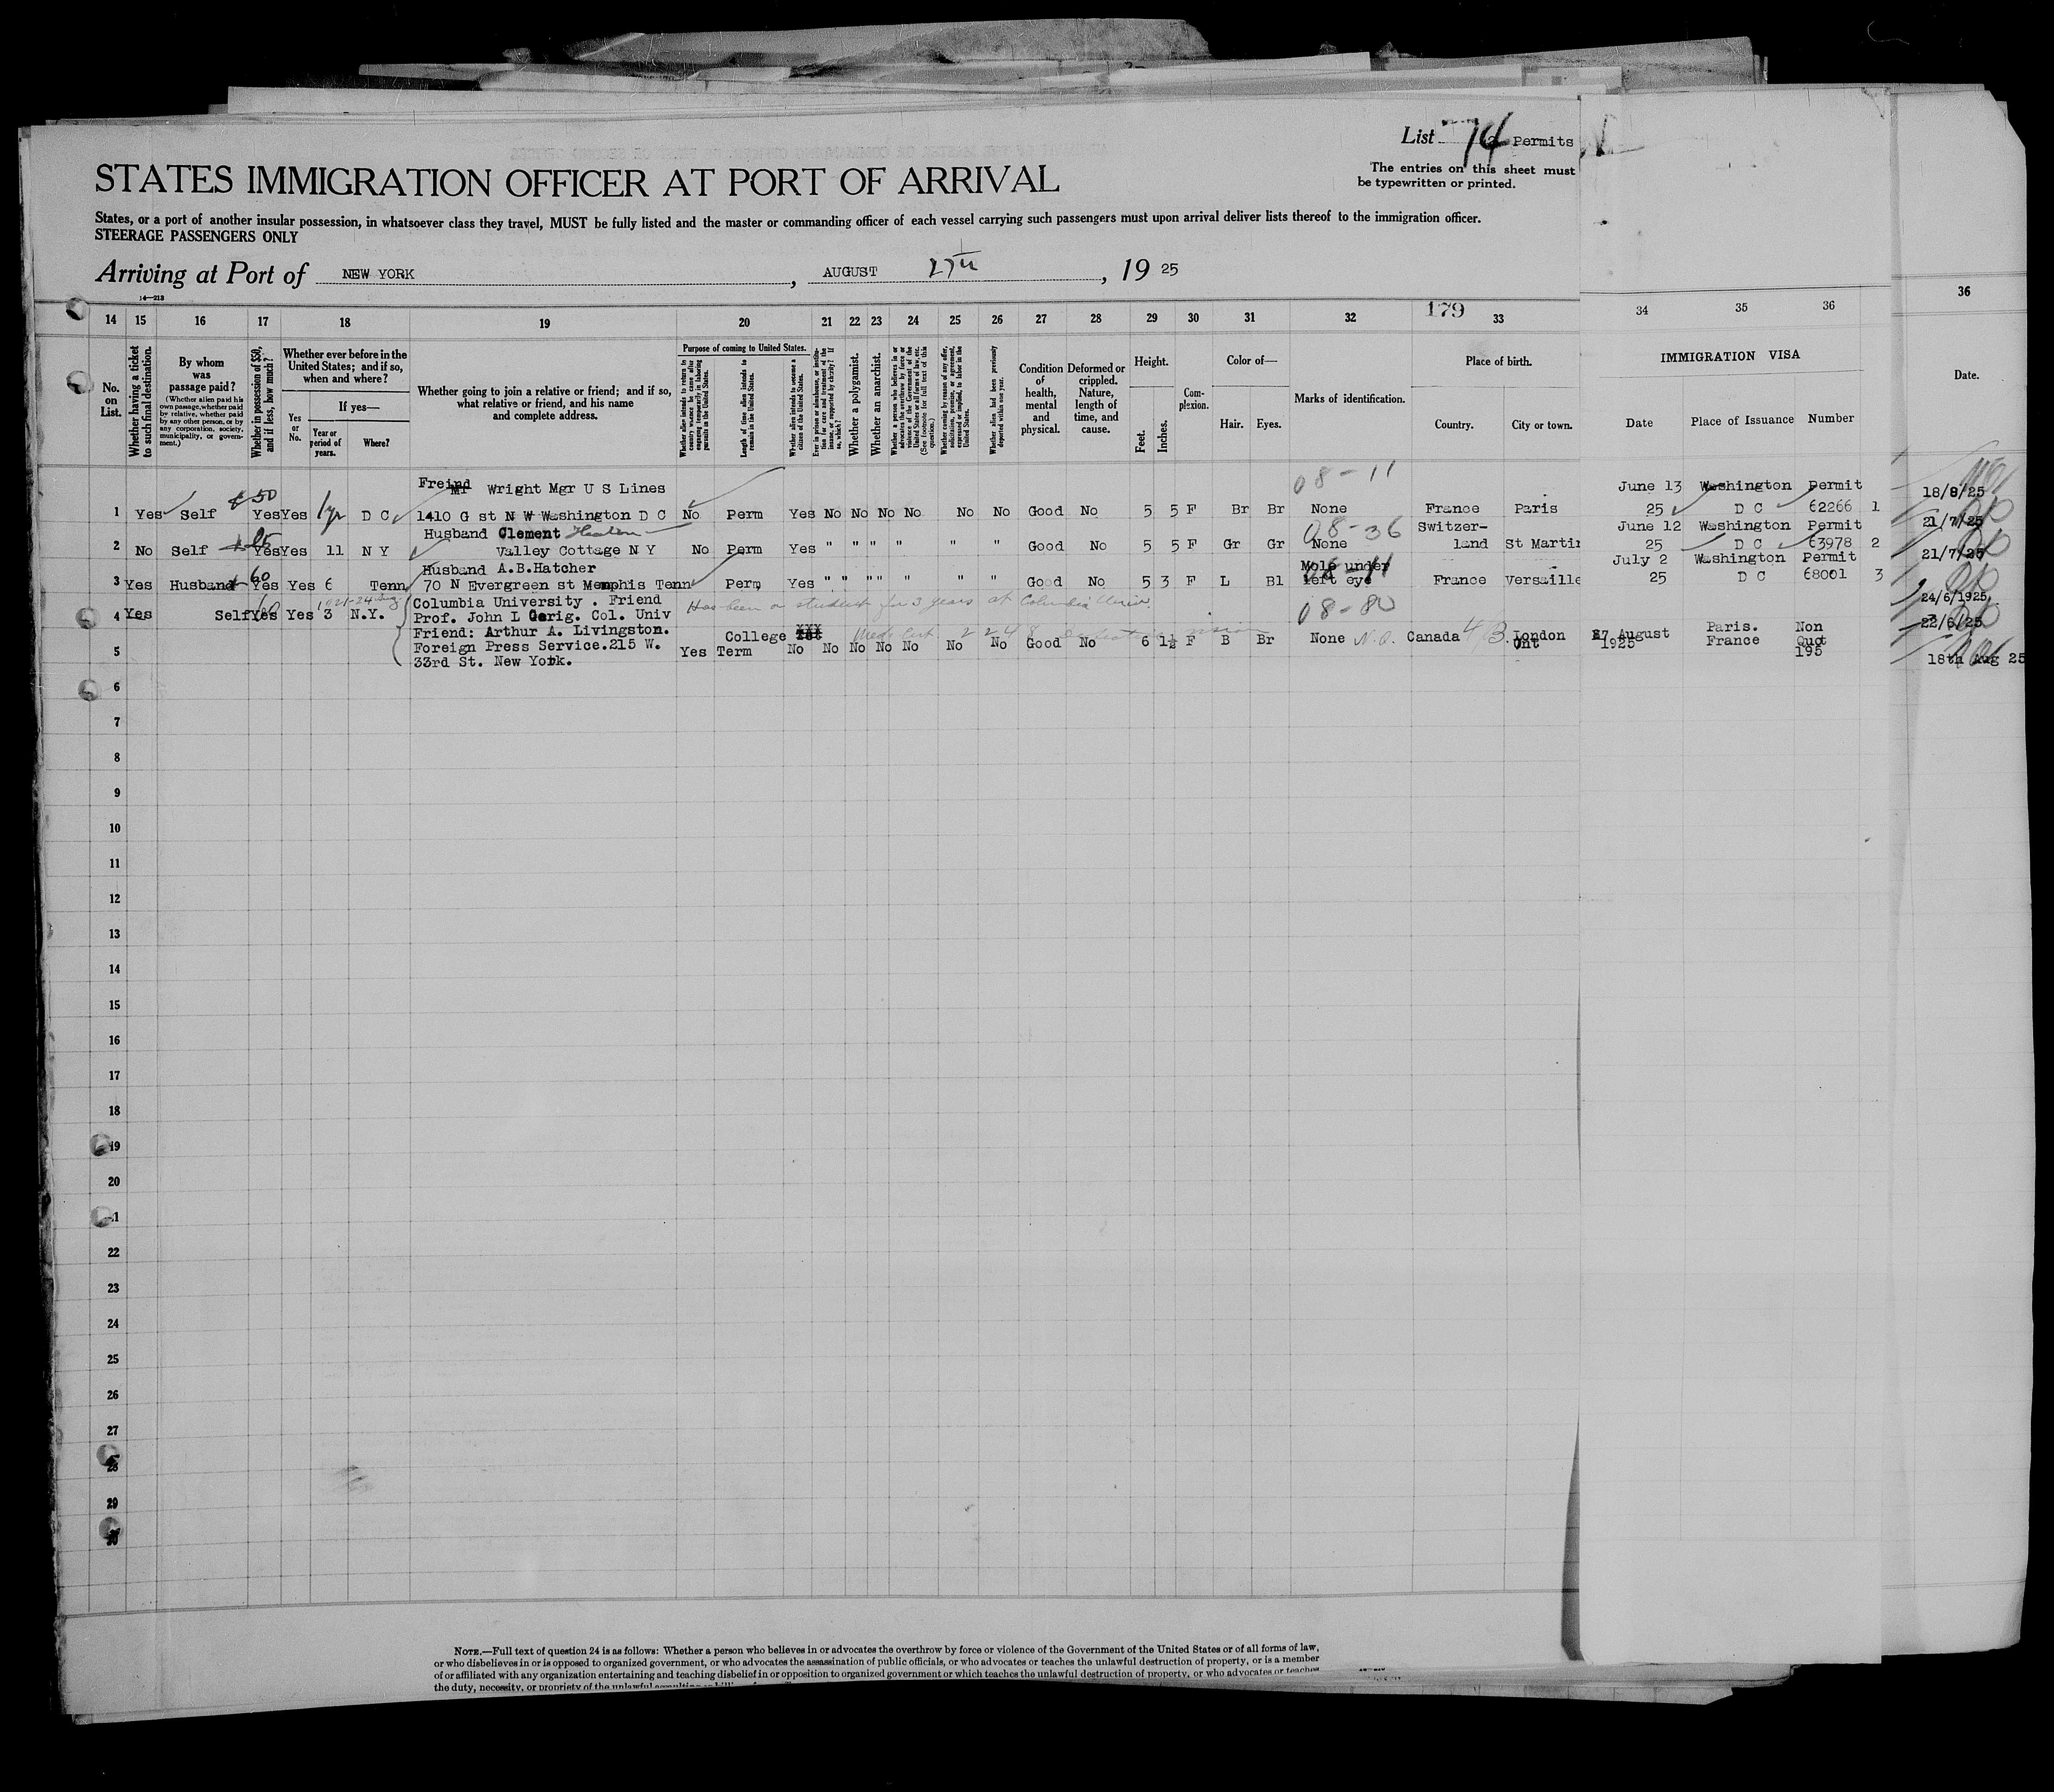 List 74 Permits
The entries on this sheet must
be typewritten or printed.
STATES IMMIGRATION OFFICER AT PORT OF ARRIVAL
States, or a port of another insular possession, in whatsoever class they travel, MUST be fully listed and the master or commanding officer of each vessel carrying such passengers must upon arrival deliver lists thereof to the immigration officer.
STEERAGE PASSENGERS ONLY
Arriving at Port of NEW YORK, AUGUST 27th, 19 25
14 15 16 17 18 19 20 21 22 23 24 25 26 27 28 29 30 31 32 179 33 34 35 36 36
No. on List.
Whether having a ticket to such final destination.
By whom was passage paid?
(Whether alien paid his own passage, whether paid by relative, whether paid by any other person, or by any corporation, society, municipality, or government.)
Whether in possession of $50, and if less, how much?
Whether ever before in the United States; and if so, when and where?
Yes or No.
If yes—
Year or period of years.
Where?
Whether going to join a relative or friend; and if so, what relative or friend, and his name and complete address.
Purpose of coming to United States.
Length of time alien intends to remain in the United States.
Whether alien intends to become a citizen of the United States.
Whether a polygamist.
Whether an anarchist.
Condition of health, mental and physical.
Deformed or crippled. Nature, length of time, and cause.
Height.
Feet. Inches.
Complexion.
Color of—
Hair. Eyes.
Marks of identification.
Place of birth.
Country. City or town.
IMMIGRATION VISA
Date Place of Issuance Number
Date.
08-11
Freind Mr Wright Mgr U S Lines June 13 Washington Permit 18/8/25
1 Yes Self 50 Yes Yes 1yr D C 1410 G st N W Washington D C No Perm Yes No No No No No No Good No 5 5 F Br Br None France Paris 25 D C 62266 1
Husband Clement Heaton 08-36 Switzer- June 12 Washington Permit 21/7/25
2 No Self Yes Yes 11 N Y Valley Cottage N Y No Perm Yes " " " " " " Good No 5 5 F Gr Gr None land St Martin 25 D C 63978 2
Husband A.B.Hatcher Mole under July 2 Washington Permit 21/7/25
3 Yes Husband 60 Yes Yes 6 Tenn 70 N Evergreen st Memphis Tenn Perm, Yes " " " " " " " Good No 5 3 F L Bl left eye France Versaille 25 D C 68001 3
Columbia University . Friend Has been a student for 3 years at Columbia Univ. 08-80 24/6/1925
4 Yes Self Yes Yes 3 N.Y. Prof. John L Gerig. Col. Univ
Friend: Arthur A. Livingston. College None N.Q. Canada London 27 August Paris. Non 23/6/25
5 Foreign Press Service.215 W. Yes Term No No No No No No No Good No 6 1½ F B Br Ont 1925 France Quot
33rd St. New York. 195 18th Aug 25
6
7
8
9
10
11
12
13
14
15
16
17
18
19
20
22
23
24
25
26
27
29
NOTE.—Full text of question 24 is as follows: Whether a person who believes in or advocates the overthrow by force or violence of the Government of the United States or of all forms of law,
or who disbelieves in or is opposed to organized government, or who advocates the assassination of public officials, or who advocates or teaches the unlawful destruction of property, or is a member
of or affiliated with any organization entertaining and teaching disbelief in or opposition to organized government or which teaches the unlawful destruction of property, or who advocates or teaches
the duty, necessity, or propriety of the unlawful